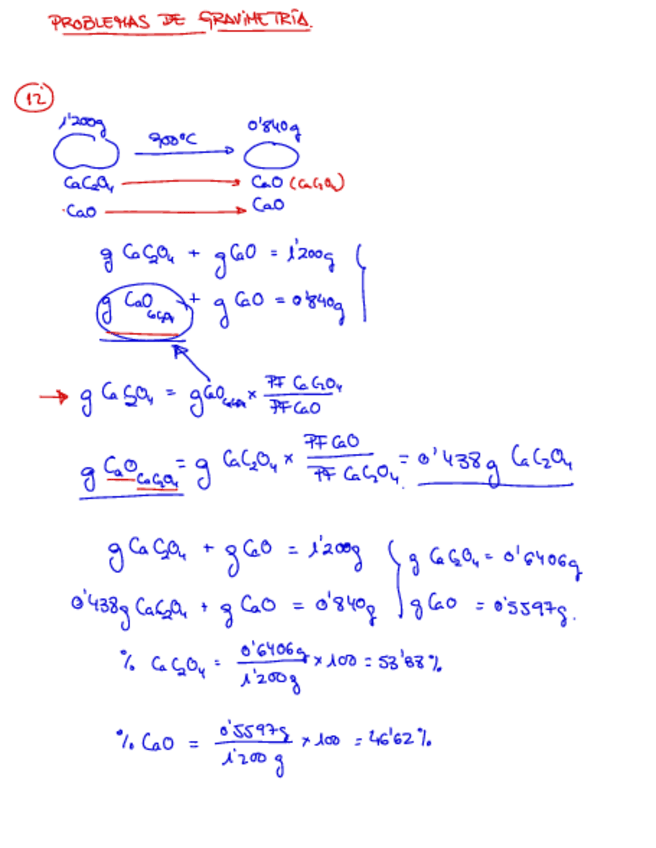 PROBLEMAS DE GRAVIMETRÍA.
12
1'200g 900ºC 0'840g
CaC₂O₄ → CaO (CaC₂O₄)
CaO → CaO
g CaC₂O₄ + g CaO = 1'200g
g CaO CaC₂O₄ + g CaO = 0'840g
→ g CaC₂O₄ = g CaO CaC₂O₄ × PF CaC₂O₄ / PF CaO
g CaO CaC₂O₄ = g CaC₂O₄ × PF CaO / PF CaC₂O₄ = 0'438g CaC₂O₄
g CaC₂O₄ + g CaO = 1'200g } g CaC₂O₄ = 0'6406g
0'438g CaC₂O₄ + g CaO = 0'840g } g CaO = 0'5597g.
% CaC₂O₄ = 0'6406g / 1'200g × 100 = 53'88%
% CaO = 0'5597g / 1'200g × 100 = 46'62%